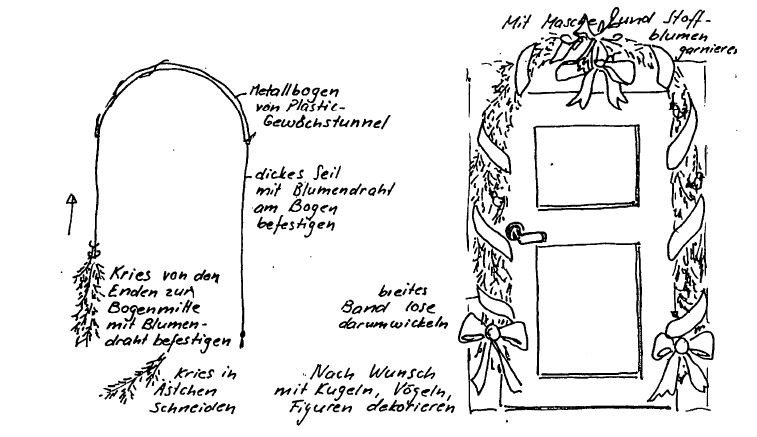 Mit Masche und Stoff-
blumen
garnieren
Metallbogen
von Plastic-
Gewächstunnel
dickes Seil
mit Blumendraht
am Bogen
befestigen
Kries von den
Enden zur
Bogenmitte
mit Blumen-
draht befestigen
Kries in
Ästchen
Schneiden
breites
Band lose
darumwickeln
Nach Wunsch
mit Kugeln, Vögeln,
Figuren dekorieren